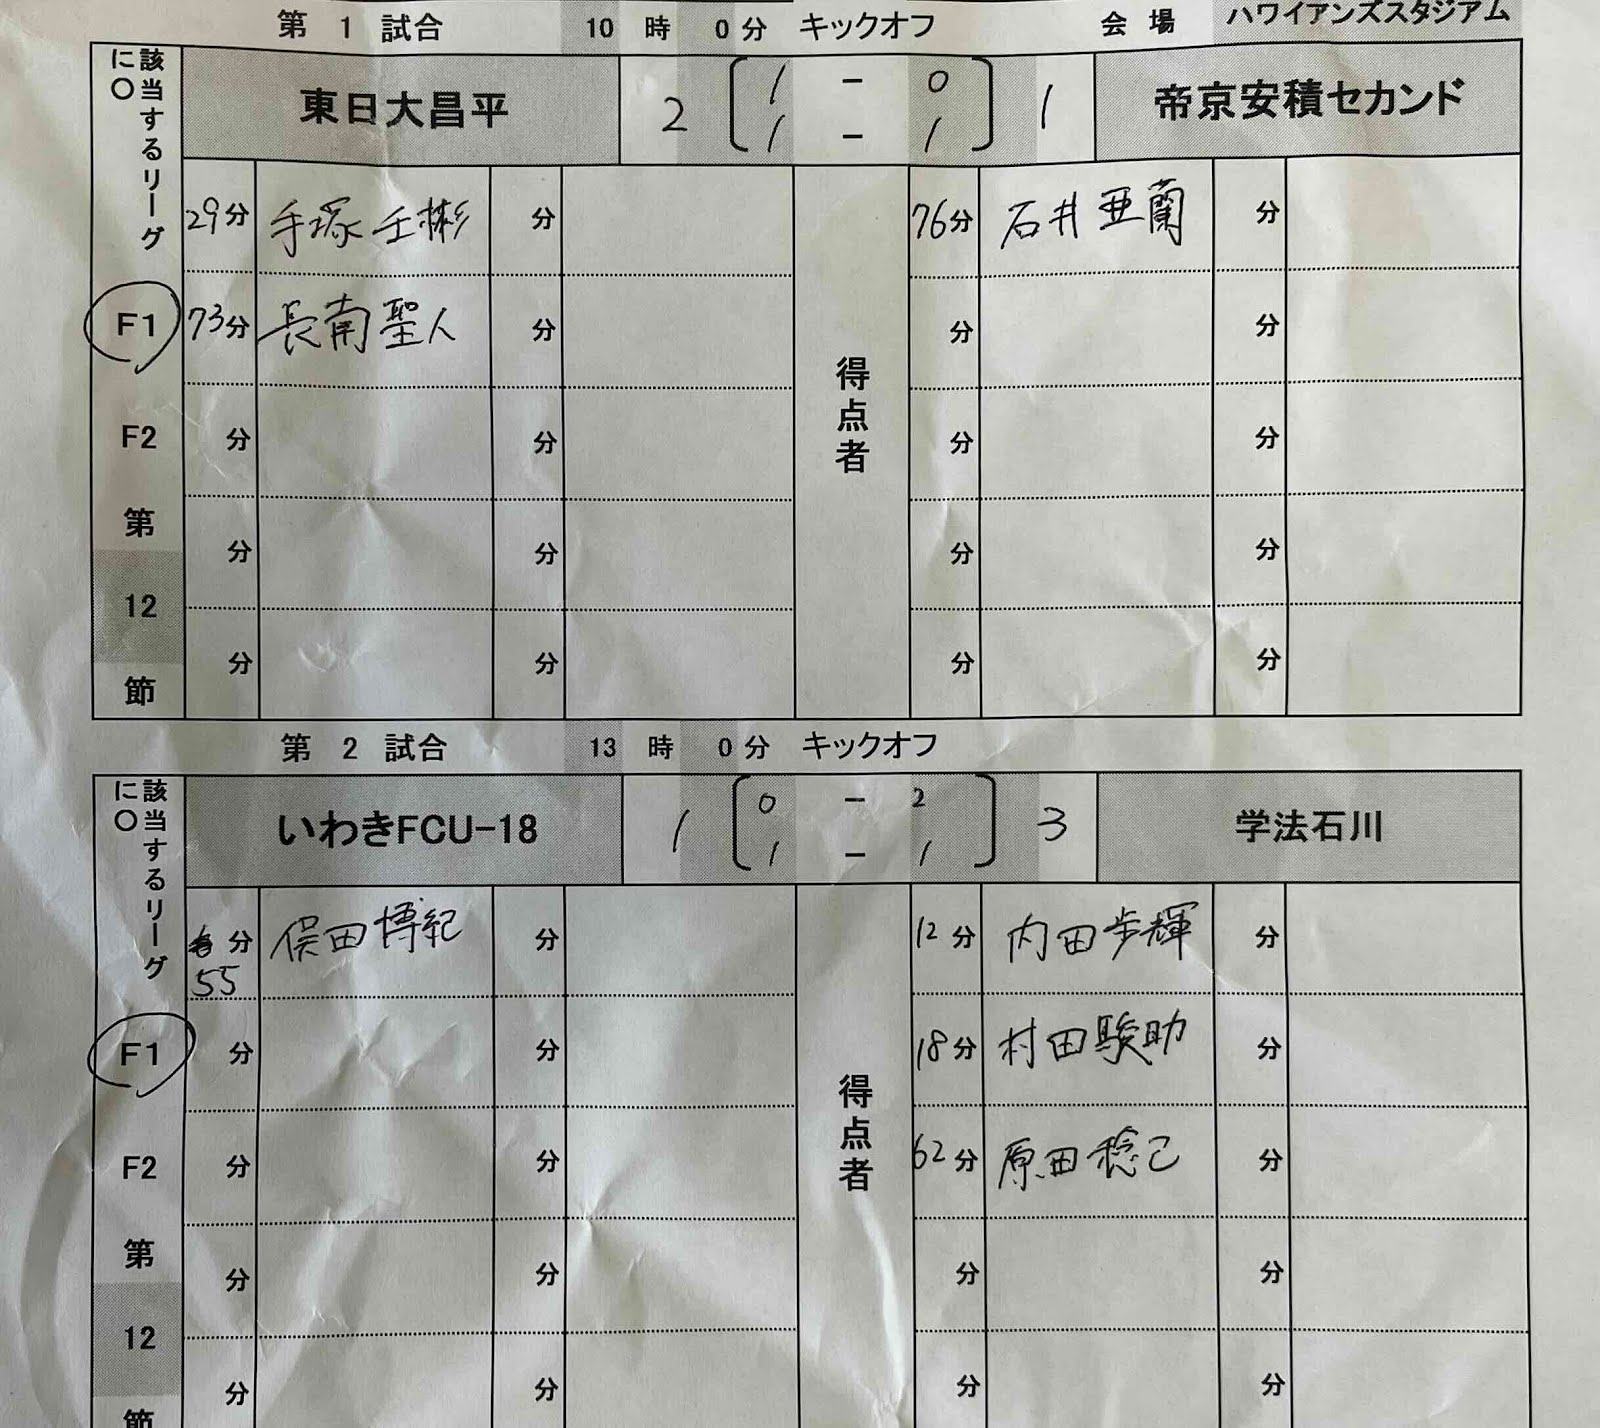 第 1 試合 10 時 0分 キックオフ 会 場 ハワイアンズスタジアム
該当するリーグ
に〇
東日大昌平 2 1 - 0 1 帝京安積セカンド
1 - 1
29分 手塚壬彬 分 76分 石井亜蘭 分
F1 73分 長南聖人 分 分 分
得点者
F2 分 分 分 分
第
分 分 分 分
12
分 分 分 分
節
第 2 試合 13 時 0分 キックオフ
該当するリーグ
に〇
いわきFCU-18 1 0 - 2 3 学法石川
1 - 1
分 俣田博紀 分 12分 内田歩輝 分
55
F1 分 分 18分 村田駿助 分
得点者
F2 分 分 62分 原田稔己 分
第
分 分 分 分
12
分 分 分 分
節